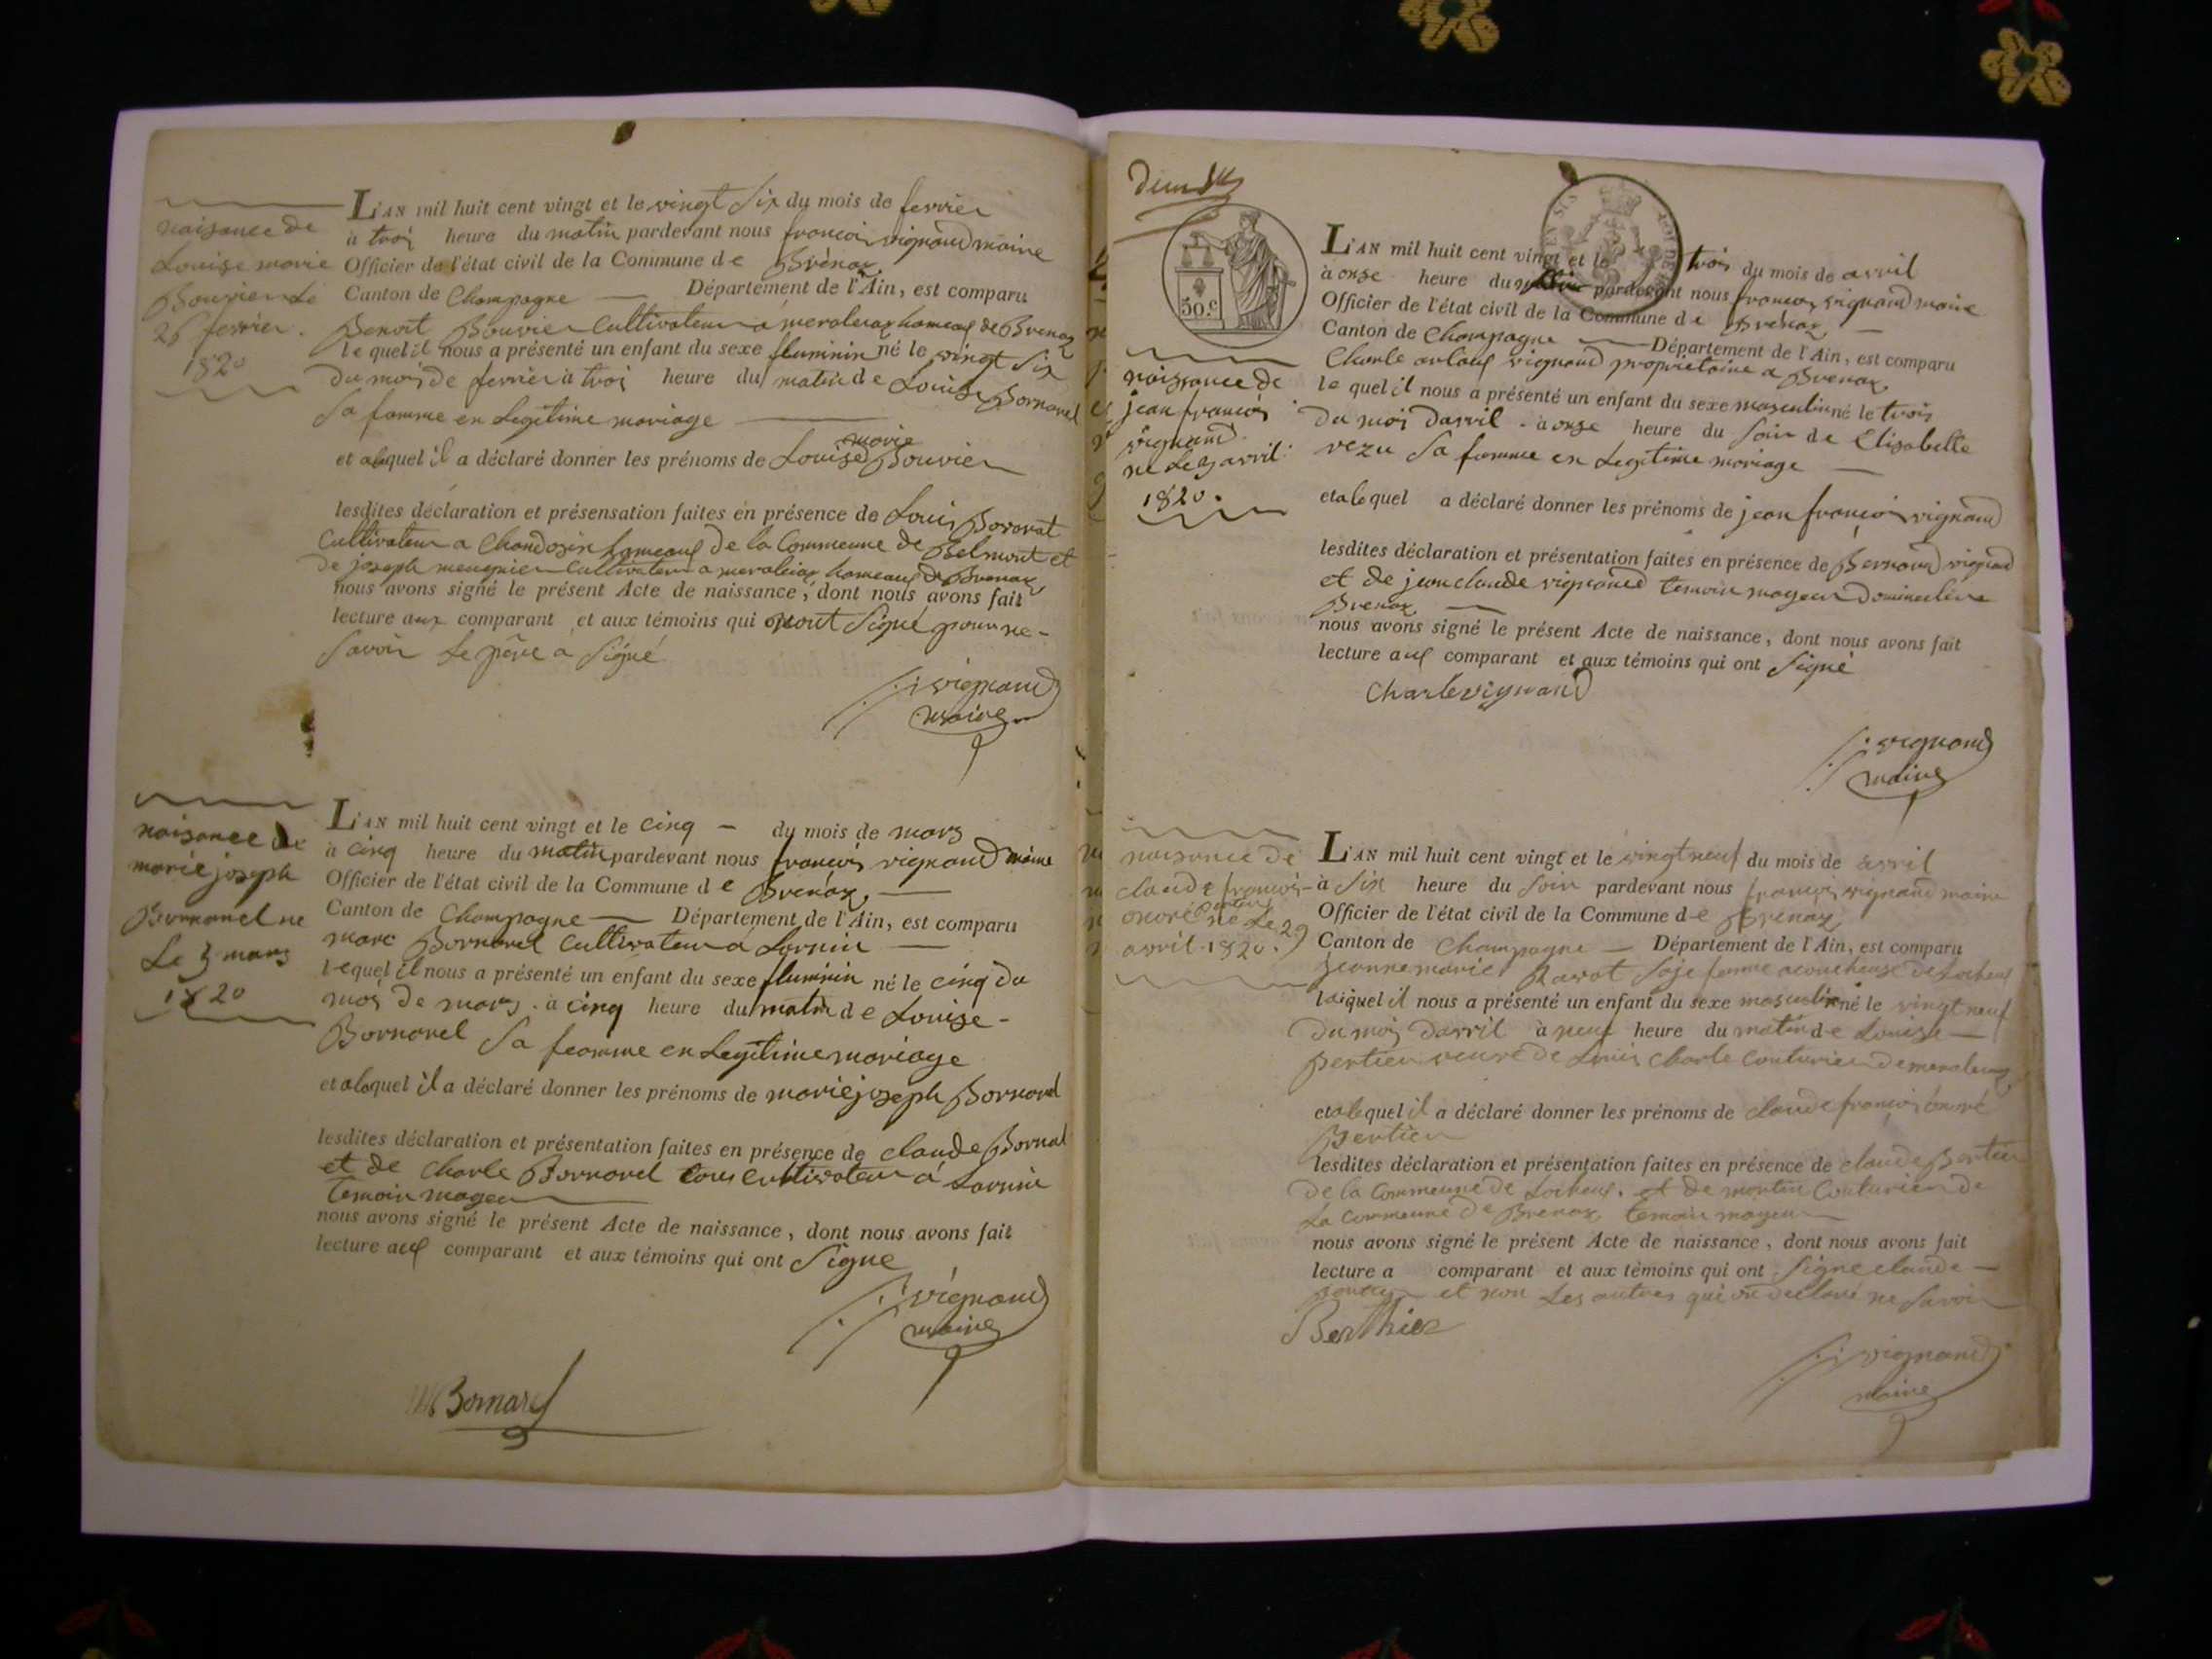 naisance de
Louise marie
Bouvier Le
26 fevrier.
1820
L'AN mil huit cent vingt et le vingt Six du mois de fevrier
à troi heure du matin pardevant nous francois vignaud maire
Officier de l'état civil de la Commune de Brénaz
Canton de Champagne Département de l'Ain, est comparu
Benoit Bouvier Cultivateur a meraleiaz hameau de Brenaz
le quel il nous a présenté un enfant du sexe fluminin né le vingt Six
du mois de fevrier à troi heure du matin de Louise Bornarel
Sa famme en Legitime mariage
et alaquel il a déclaré donner les prénoms de Louise marie Bouvier
lesdites déclaration et présensation faites en présence de Louis
Cultivateur a Chandosin hameaux de la Commeune de Belmont et
de joseph meugnier Cultivateur a meraleiaz hameaux de Brenaz
nous avons signé le présent Acte de naissance, dont nous avons fait
lecture aux comparant et aux témoins qui nont Signé pour ne-
Savoir Le père a Signé
vignaud
maire
naisance de
marie joseph
Bornarel ne
Le 5 mars
1820
L'AN mil huit cent vingt et le cinq - du mois de mars
à cinq heure du matin pardevant nous francois vignaud maire
Officier de l'état civil de la Commune de Brenaz
Canton de Champagne Département de l'Ain, est comparu
marc Bornarel Cultivateur à
lequel il nous a présenté un enfant du sexe fluminin né le cinq du
moi de mars. à cinq heure du matin de Louise-
Bornarel Sa feamme en Legitime mariage
et alaquel il a déclaré donner les prénoms de marie joseph Bornarel
lesdites déclaration et présentation faites en présence de claude
et de Charle Bornarel tous cultivateur à
temoin mageur
nous avons signé le présent Acte de naissance, dont nous avons fait
lecture aux comparant et aux témoins qui ont Signe
vignaud
maire
Bornarel
50.c
naissance de
jean françois
vignaud.
ne Le 3 avril
1820.
L'AN mil huit cent vingt et le trois du mois de avril
à onze heure du pardevant nous francois vignaud maire
Officier de l'état civil de la Commune de Brénaz
Canton de Champagne Département de l'Ain, est comparu
Charle vignaud propriétaire a Brenaz
le quel il nous a présenté un enfant du sexe masculin né le trois
du moi davril. à onze heure du Soir de Elisabelle
vezu Sa famme en Legitime mariage
et alequel a déclaré donner les prénoms de jean françois vignaud
lesdites déclaration et présentation faites en présence de Bernard vignaud
et de jean claude vignaud temoin mageur
Brenaz
nous avons signé le présent Acte de naissance, dont nous avons fait
lecture aux comparant et aux témoins qui ont Signé
Charle vignaud
vignaud
maire
naisance de
claude françois-
onoré Bertier
né Le 29
avril 1820.
L'AN mil huit cent vingt et le vingt neuf du mois de avril
à Six heure du Soir pardevant nous françois vignaud maire
Officier de l'état civil de la Commune de Brenaz
Canton de Champagne Département de l'Ain, est comparu
jeanne marie Ravat Saje femme acoucheuse de
laiquel il nous a présenté un enfant du sexe masculin né le vingt neuf
du moi davril à neuf heure du matin de Louise
Bertier veuve de Louis Charle Couturier de
et alequel il a déclaré donner les prénoms de claude françois onoré
Bertier
lesdites déclaration et présentation faites en présence de claude Bertier
de la Commeune de . et de Couturier de
La Commeune de Brenaz temoin mageur
nous avons signé le présent Acte de naissance, dont nous avons fait
lecture a comparant et aux témoins qui ont Signe claude
et non Les autres qui on declare ne Savoir
Berthier
vignaud
maire